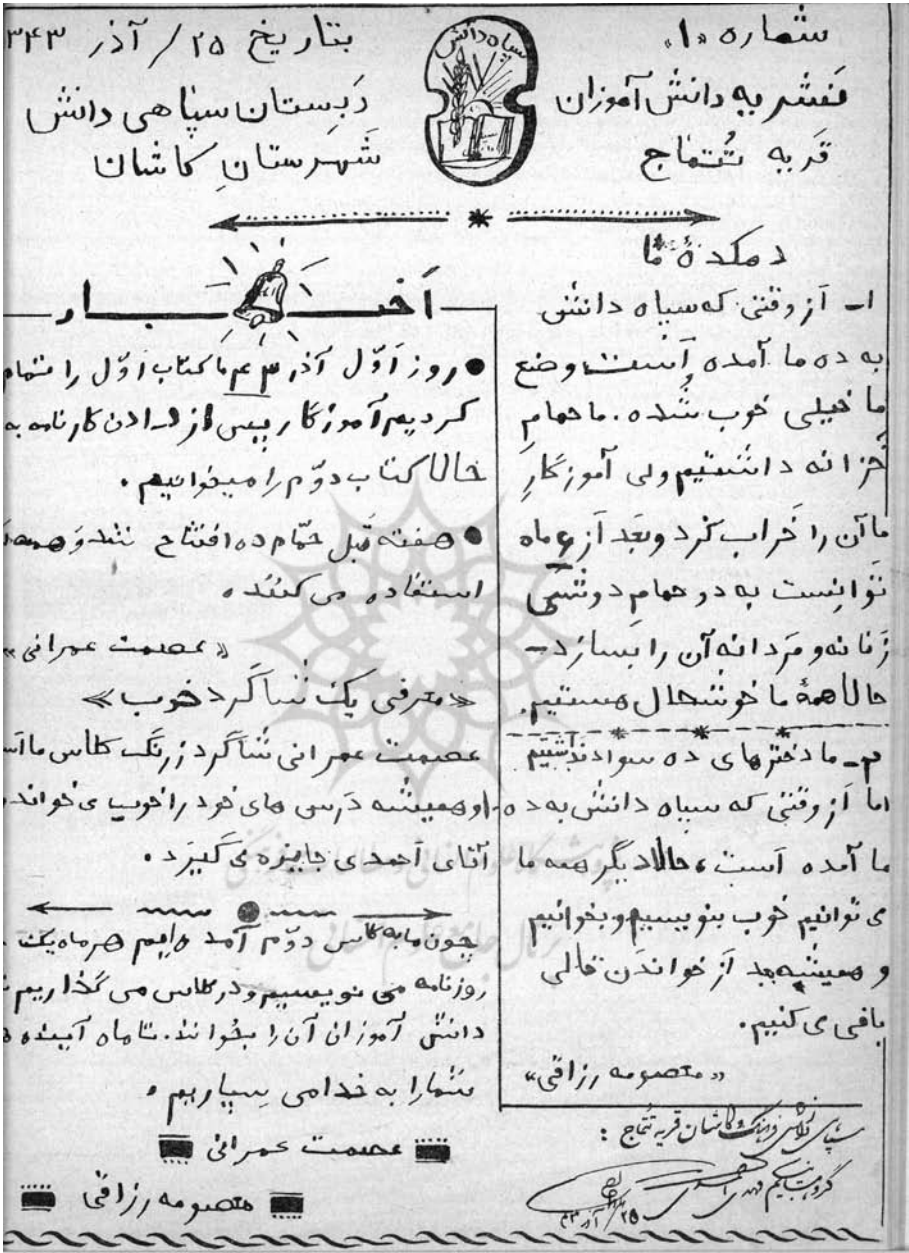 شماره «۱»
نشریه دانش آموزان
قریه تُتماج
سپاه دانش
بتاریخ ۲۵/ آذر ۳۴۳
دَبستان سپاهی دانش
شَهرستانِ کاشان
دهکدهٔ ما
۱ـ اَز وقتی که سپاه دانش
به ده ما آمده اَست وضع
ما خیلی خوب شده. ما حمامِ
خَزانه داشتیم ولی آموزگارِ
ما آن را خَراب کَرد و بَعد اَز ۶ ماه
تَوانِست به دو حمامِ دوشی
زَنانه و مَردانه آن را بسازد ـ
حالا همهٔ ما خوشحال هستیم.
۲ـ ما دخترهای ده سواد نداشتیم
اما اَز وقتی که سپاه دانش به ده
ما آمده اَست، حالا دیگر همه ما
می توانیم خوب بنویسیم و بخوانیم
و همیشه بعد اَز خواندَن قالی
بافی می کنیم.
«معصومه رزاقی»
سپاهی دانش فرهنگ کاشان قریه تتماج :
۲۵/ آذر ۴۳
اَخبـــار
● روز اَوّل آذر ۴۳ ما کتاب اوّل را تمام
کردیم آموزگار پس از دادن کارنامه به
حالا کتاب دوّم را میخوانیم.
● هفته قَبل حمّام ده افتتاح شد و همه
استفاده می کنند.
«عصمت عمرانی»
«معرفی یک شاگرد خوب»
عصمت عمرانی شاگرد زرنگ کلاس ما
او همیشه دَرس های خود را خوب می خواند
آقای اَحمدی جایزه می گیرَد.
چون ما به کلاس دوّم آمده ایم هر ماه یک
روزنامه می نویسیم و در کلاس می گذاریم
دانش آموزان آن را بخوانند. تا ماه آینده
شما را به خدا می سپاریم.
عصمت عمرانی
معصومه رزاقی